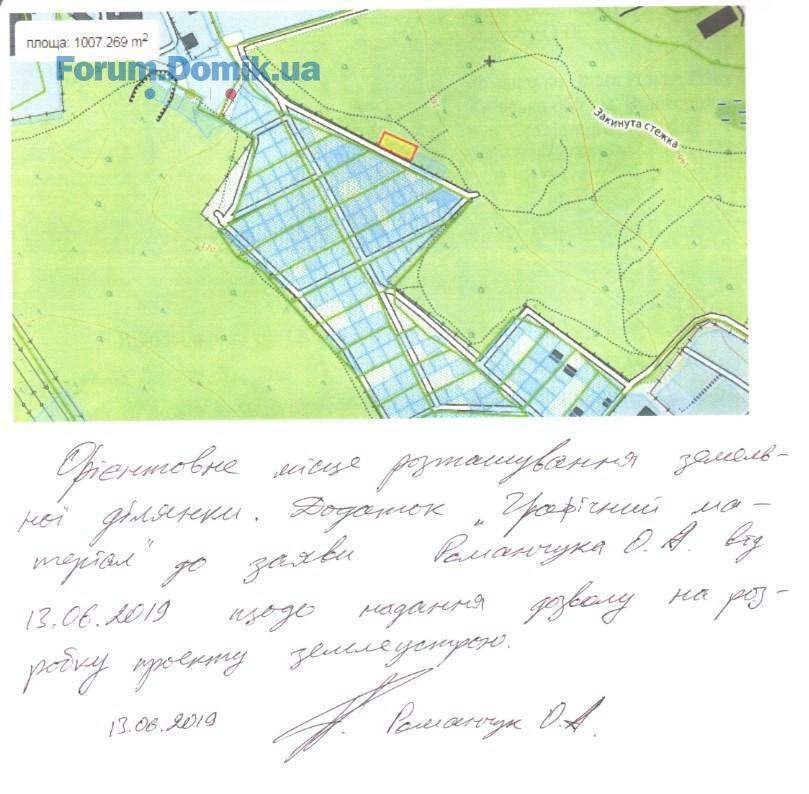 площа: 1007.269 m²
Forum.Domik.ua
Закинута стежка
Орієнтовне місце розташування земель-
ної ділянки. Додаток „Графічний ма-
теріал" до заяви Романчука О.А. від
13.06.2019 щодо надання дозволу на роз-
робку проекту землеустрою.
13.06.2019 Романчук О.А.